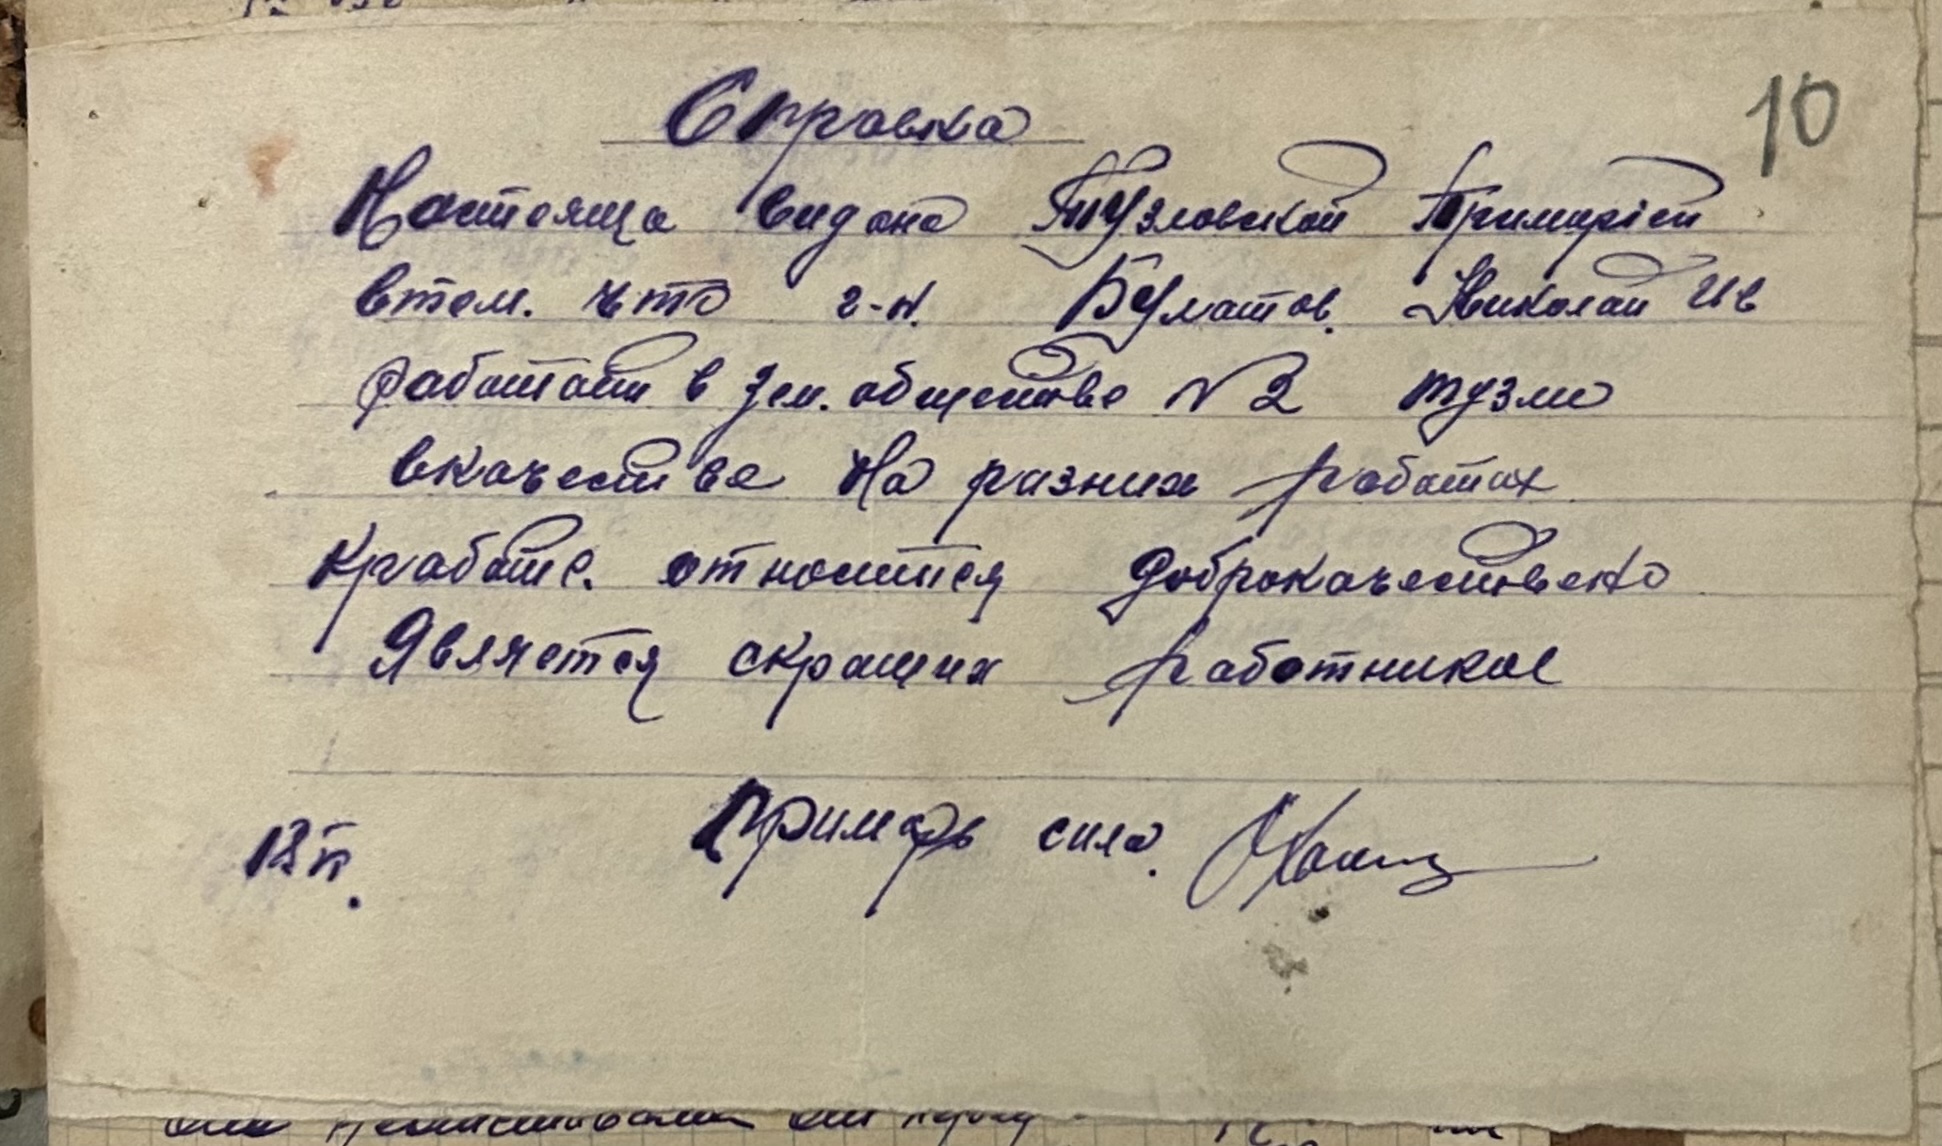 10
Справка
Настояща видана Тузловской Примаріей
втом. что г-н. Булатов. Николай Ив
работает в Зем. обществе №2 тузли
вкачестве На разних работах
Кработе. относится доброкачествено
Является скромних работником
Примарь сила.